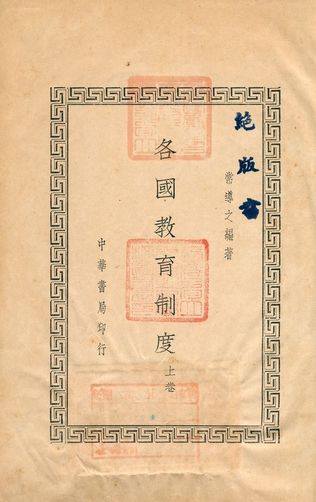 絕版書
常導之編著
各國教育制度 上卷
中華書局印行